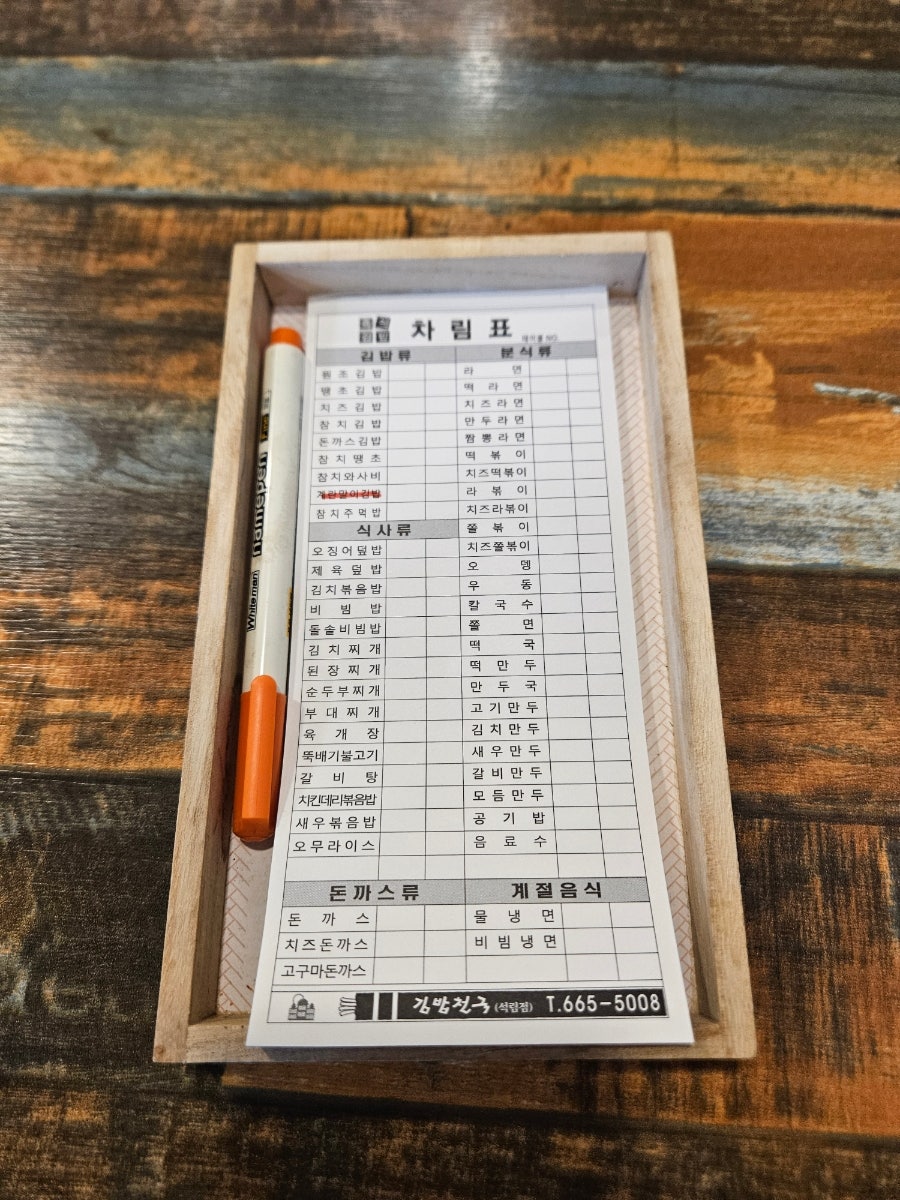 차림표
테이블 NO.
김밥류
원조김밥
땡초김밥
치즈김밥
참치김밥
돈까스김밥
참치땡초
참치와사비
계란말이김밥
참치주먹밥
식사류
오징어덮밥
제육덮밥
김치볶음밥
비빔밥
돌솥비빔밥
김치찌개
된장찌개
순두부찌개
부대찌개
육개장
뚝배기불고기
갈비탕
치킨데리볶음밥
새우볶음밥
오무라이스
돈까스류
돈까스
치즈돈까스
고구마돈까스
분식류
라면
떡라면
치즈라면
만두라면
짬뽕라면
떡볶이
치즈떡볶이
라볶이
치즈라볶이
쫄볶이
치즈쫄볶이
오뎅
우동
칼국수
쫄면
떡국
떡만두
만두국
고기만두
김치만두
새우만두
갈비만두
모듬만두
공기밥
음료수
계절음식
물냉면
비빔냉면
김밥천국 (석림점) T.665-5008
Whiteman namepen